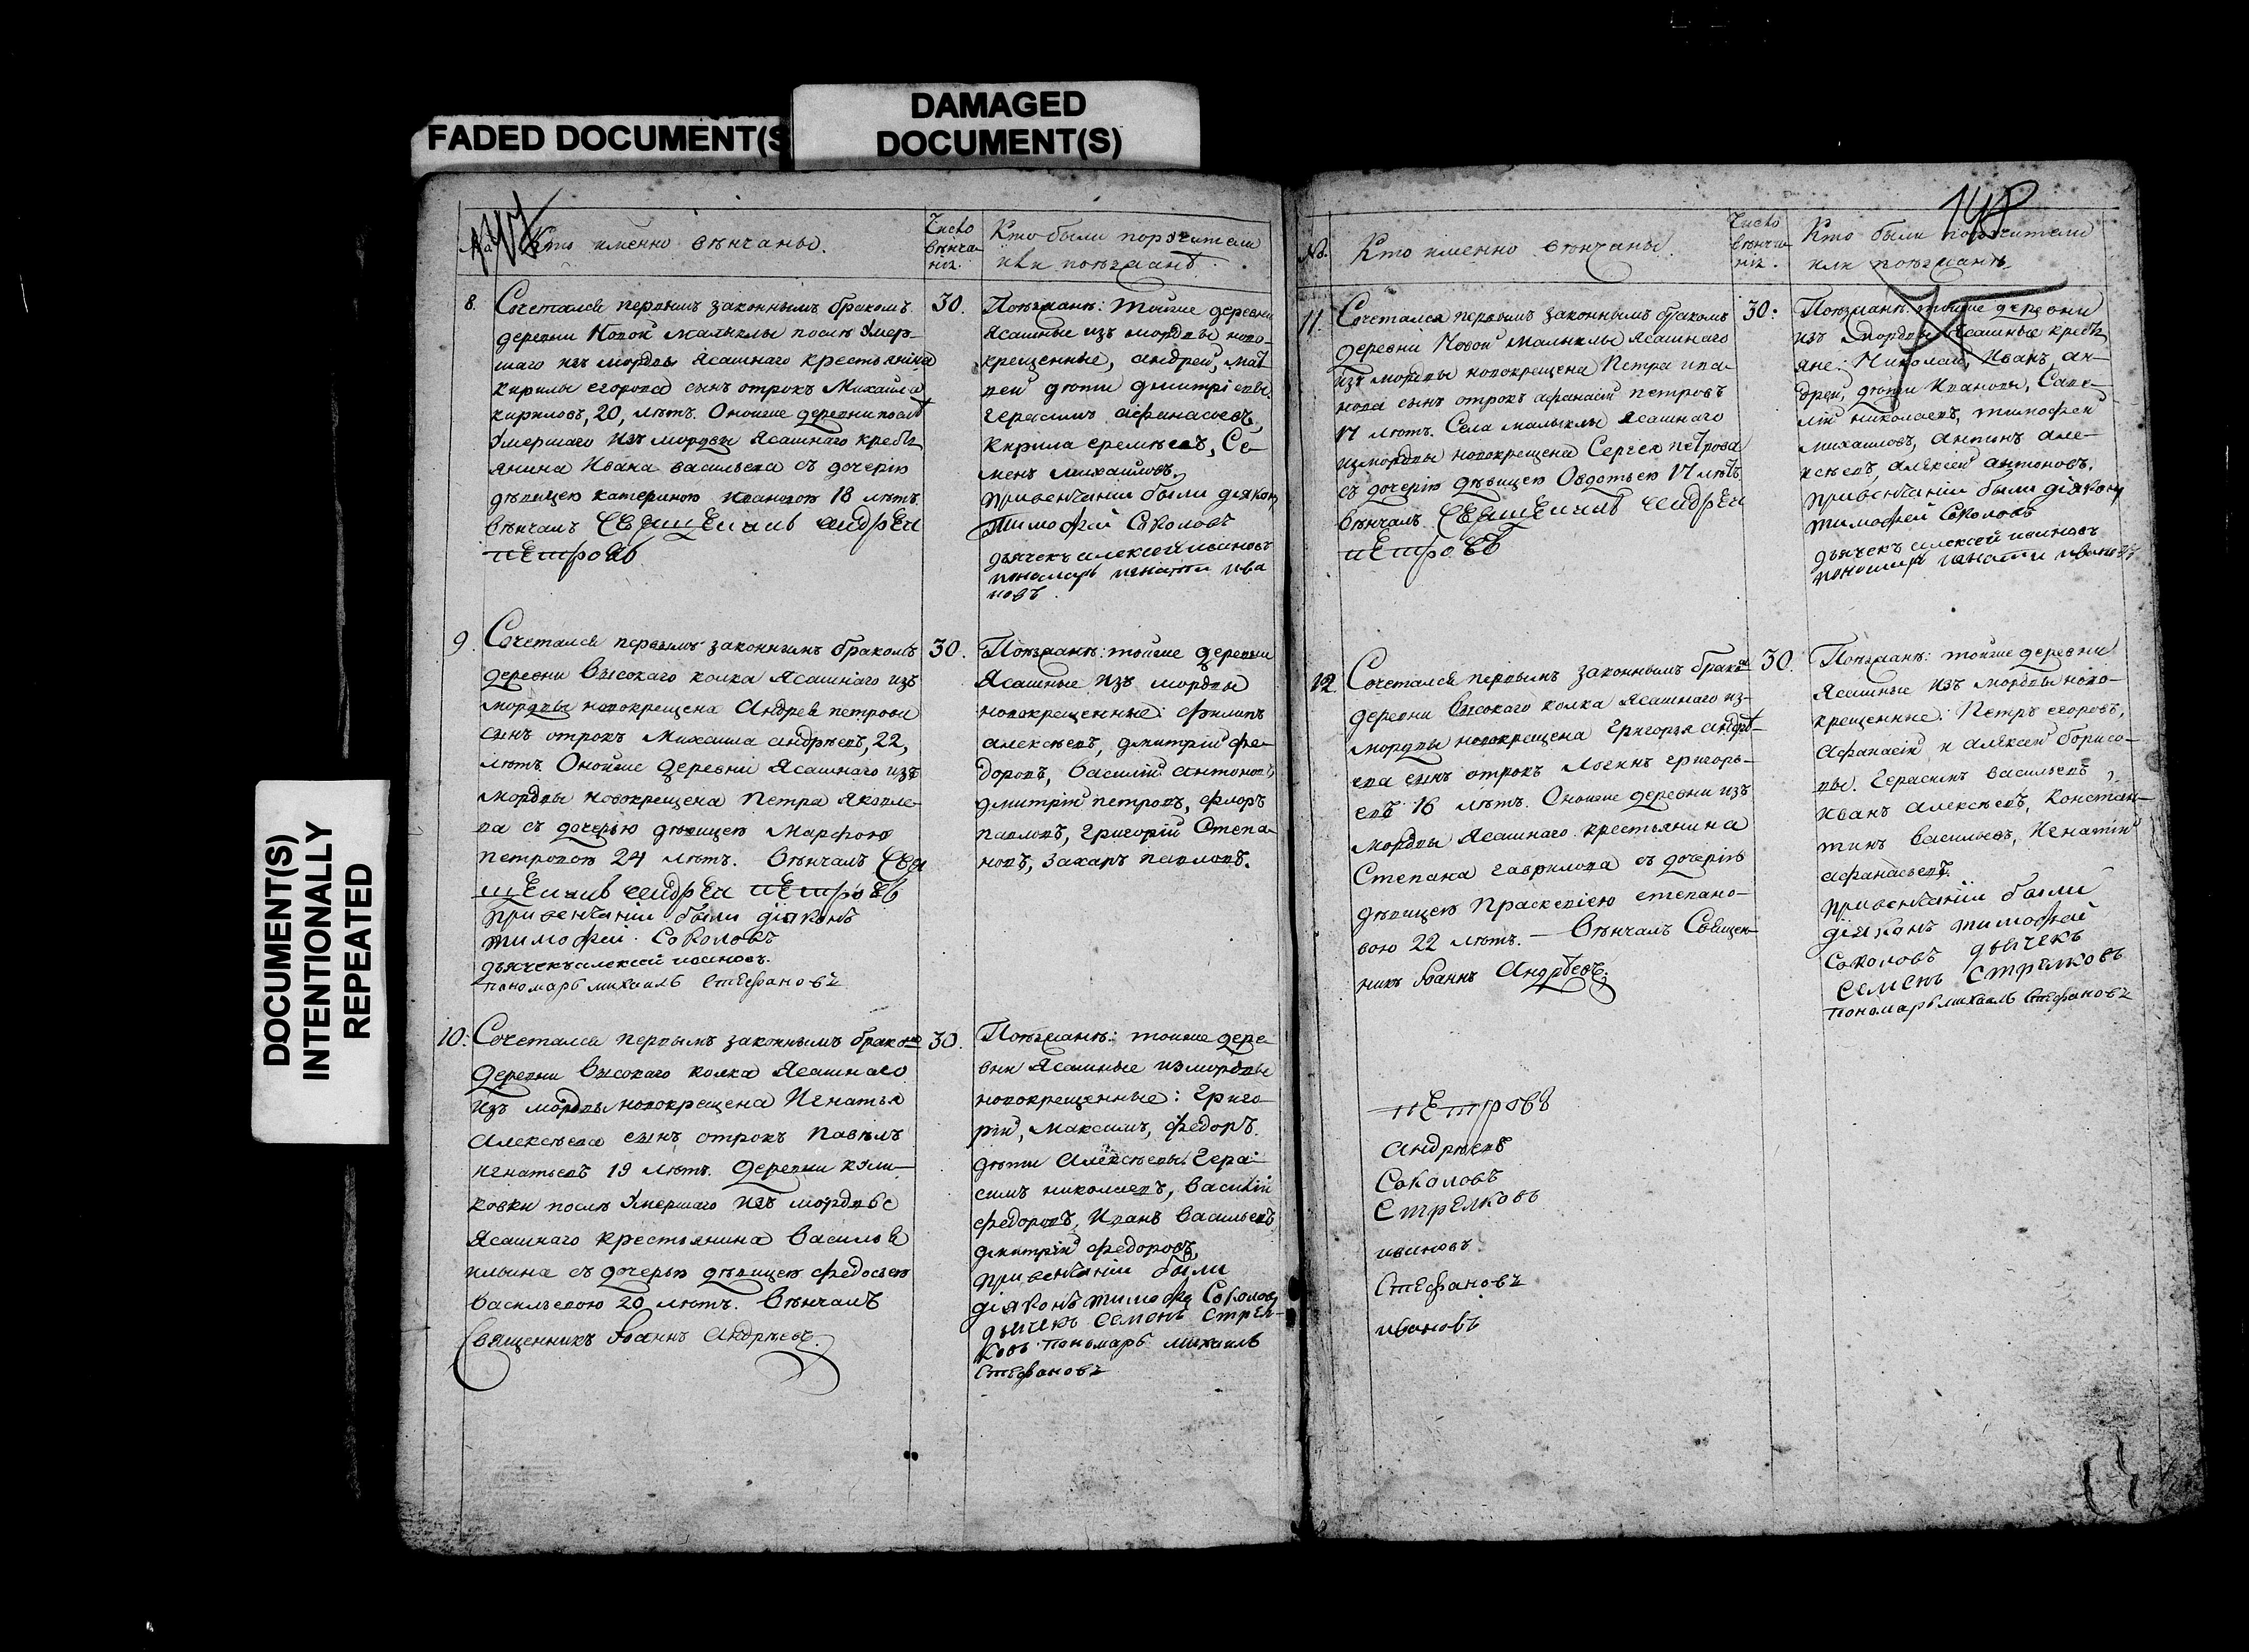 FADED DOCUMENT(S
DAMAGED
DOCUMENT(S)
DOCUMENT(S)
INTENTIONALLY
REPEATED
Кто именно вѣнчаны.
Число
вѣнча-
нія.
Кто были поручители
или поѣзжанѣ.
8. Сочетался первымъ законнымъ бракомъ
деревни Новой Малыклы послѣ умер-
шаго изъ мордвы ясашнаго крестьянина
Кирилы Егорова сынъ отрокъ Михайла
Кириловъ, 20, лѣтъ. Оноиже деревни послѣ
умершаго изъ мордвы ясашнаго кресть
янина Ивана Васильева съ дочерію
дѣвицею Катериною Ивановою 18 лѣтъ.
Вѣнчалъ Священикъ Андрей
Петровъ
30.
Поѣзжанѣ: Тоиже деревни
ясашные изъ мордвы ново-
крещенные, Андрей, Мат
вей дѣти Дмитріевы
Герасимъ Афанасьевъ,
Кирила Еремѣевъ, Се-
менъ Михайловъ.
при венчаніи были діяконъ
Тимофей Соколовъ
дьячекъ алексей ивановъ
пономарь игнати ива
новъ
9. Сочетался первымъ законнымъ бракомъ
деревни Высокаго колка ясашнаго изъ
мордвы новокрещена Андрея Петрова
сынъ отрокъ Михаила Андрѣевъ, 22,
лѣтъ. Оноиже деревни ясашнаго изъ
мордвы новокрещена Петра Яковле-
ва съ дочерью дѣвицею Марфою
Петровою 24 лѣтъ. Вѣнчалъ Свя
щеникъ Андрей Петровъ
при венчаніи были діяконъ
тимофей Соколовъ
дьячекъ алексей ивановъ.
пономарь михаилъ Стефановъ
30.
Поѣзжанѣ: тоиже деревни
ясашные изъ мордвы
новокрещенные: Филипъ
Алексѣевъ, Дмитрій Фе-
доровъ, Василій Антоновъ,
Дмитрій Петровъ, Флоръ
Павловъ, Григорій Степа-
новъ, Захаръ Павловъ.
10. Сочетался первымъ законнымъ бракомъ
деревни Высокаго колка ясашнаго
изъ мордвы новокрещена Игнатья
Алексѣева сынъ отрокъ Павелъ
Игнатьевъ 19 лѣтъ. Деревни кули-
ковки послѣ умершаго изъ мордвы
ясашнаго крестьянина Василья
Ильина съ дочерью дѣвицею Федосьею
Васильевою 20 лѣтъ. Вѣнчалъ
Священникъ Іоаннъ Андрѣевъ.
30.
Поѣзжанѣ: тоиже дере-
вни ясашные из мордвы
новокрещенные: Григо-
рій, Максимъ, Федоръ
дѣти Алексѣевы. Гера-
симъ Николаевъ, Василій
Федоровъ, Иванъ Васильевъ
Дмитрій Федоровъ,
при венчаніи были
діяконъ тимофе Соколовъ
дьячекъ Семенъ Стрел-
ковъ пономарь михаилъ
Стефановъ
148
№.
Кто именно вѣнчаны.
Число
вѣнча-
нія.
Кто были поручители
или поѣзжанѣ.
11. Сочетался первымъ законнымъ бракомъ
деревни Новой Малыклы ясашнаго
изъ мордвы новокрещена Петра Ива-
нова сынъ отрокъ Афанасій Петровъ
17 лѣтъ. Села Малыклы ясашнаго
из мордвы новокрещена Сергея Петрова
съ дочерію дѣвицею Овдотьею 17 лѣтъ
Вѣнчалъ Священикъ Андрей
Петровъ
30.
Поѣзжанѣ: тоиже деревни
изъ мордвы ясашные кресть
яне: Николай, Иванъ, Ан-
дрей, дѣти Ивановы, Саве-
лій Николаевъ, Тимофей
Михаиловъ, Антипъ Але-
ксѣевъ, Алексей Антоновъ.
при венчаніи были діяконъ
тимофей Соколовъ
дьячекъ алексей ивановъ
пономарь игнати ивановъ
12. Сочетался первымъ законнымъ бракомъ
деревни Высокаго колка ясашнаго из-
мордвы новокрещена Григорья Андрѣ-
ева сынъ отрокъ Логинъ Григорь-
евъ 16 лѣтъ. Оноиже деревни изъ
мордвы ясашнаго крестьянина
Степана Гаврилова съ дочерію
дѣвицею Праскевіею Степано-
вою 22 лѣтъ. — Вѣнчалъ Священ-
никъ Іоаннъ Андрѣевъ.
30.
Поѣзжанѣ: тоиже деревни
ясашные изъ мордвы ново-
крещенные: Петръ Егоровъ,
Афанасій и Алексей Борисо-
вы. Герасимъ Васильевъ,
Иванъ Алексѣевъ, Констан-
тинъ Васильевъ, Игнатій
Афанасьевъ.
при венчаніи были
діяконъ тимофей
Соколовъ дьячекъ
Семенъ Стрелковъ
пономарь михаилъ Стефановъ
Петровъ
Андрѣевъ
Соколовъ
Стрелковъ
ивановъ
Стефановъ
ивановъ